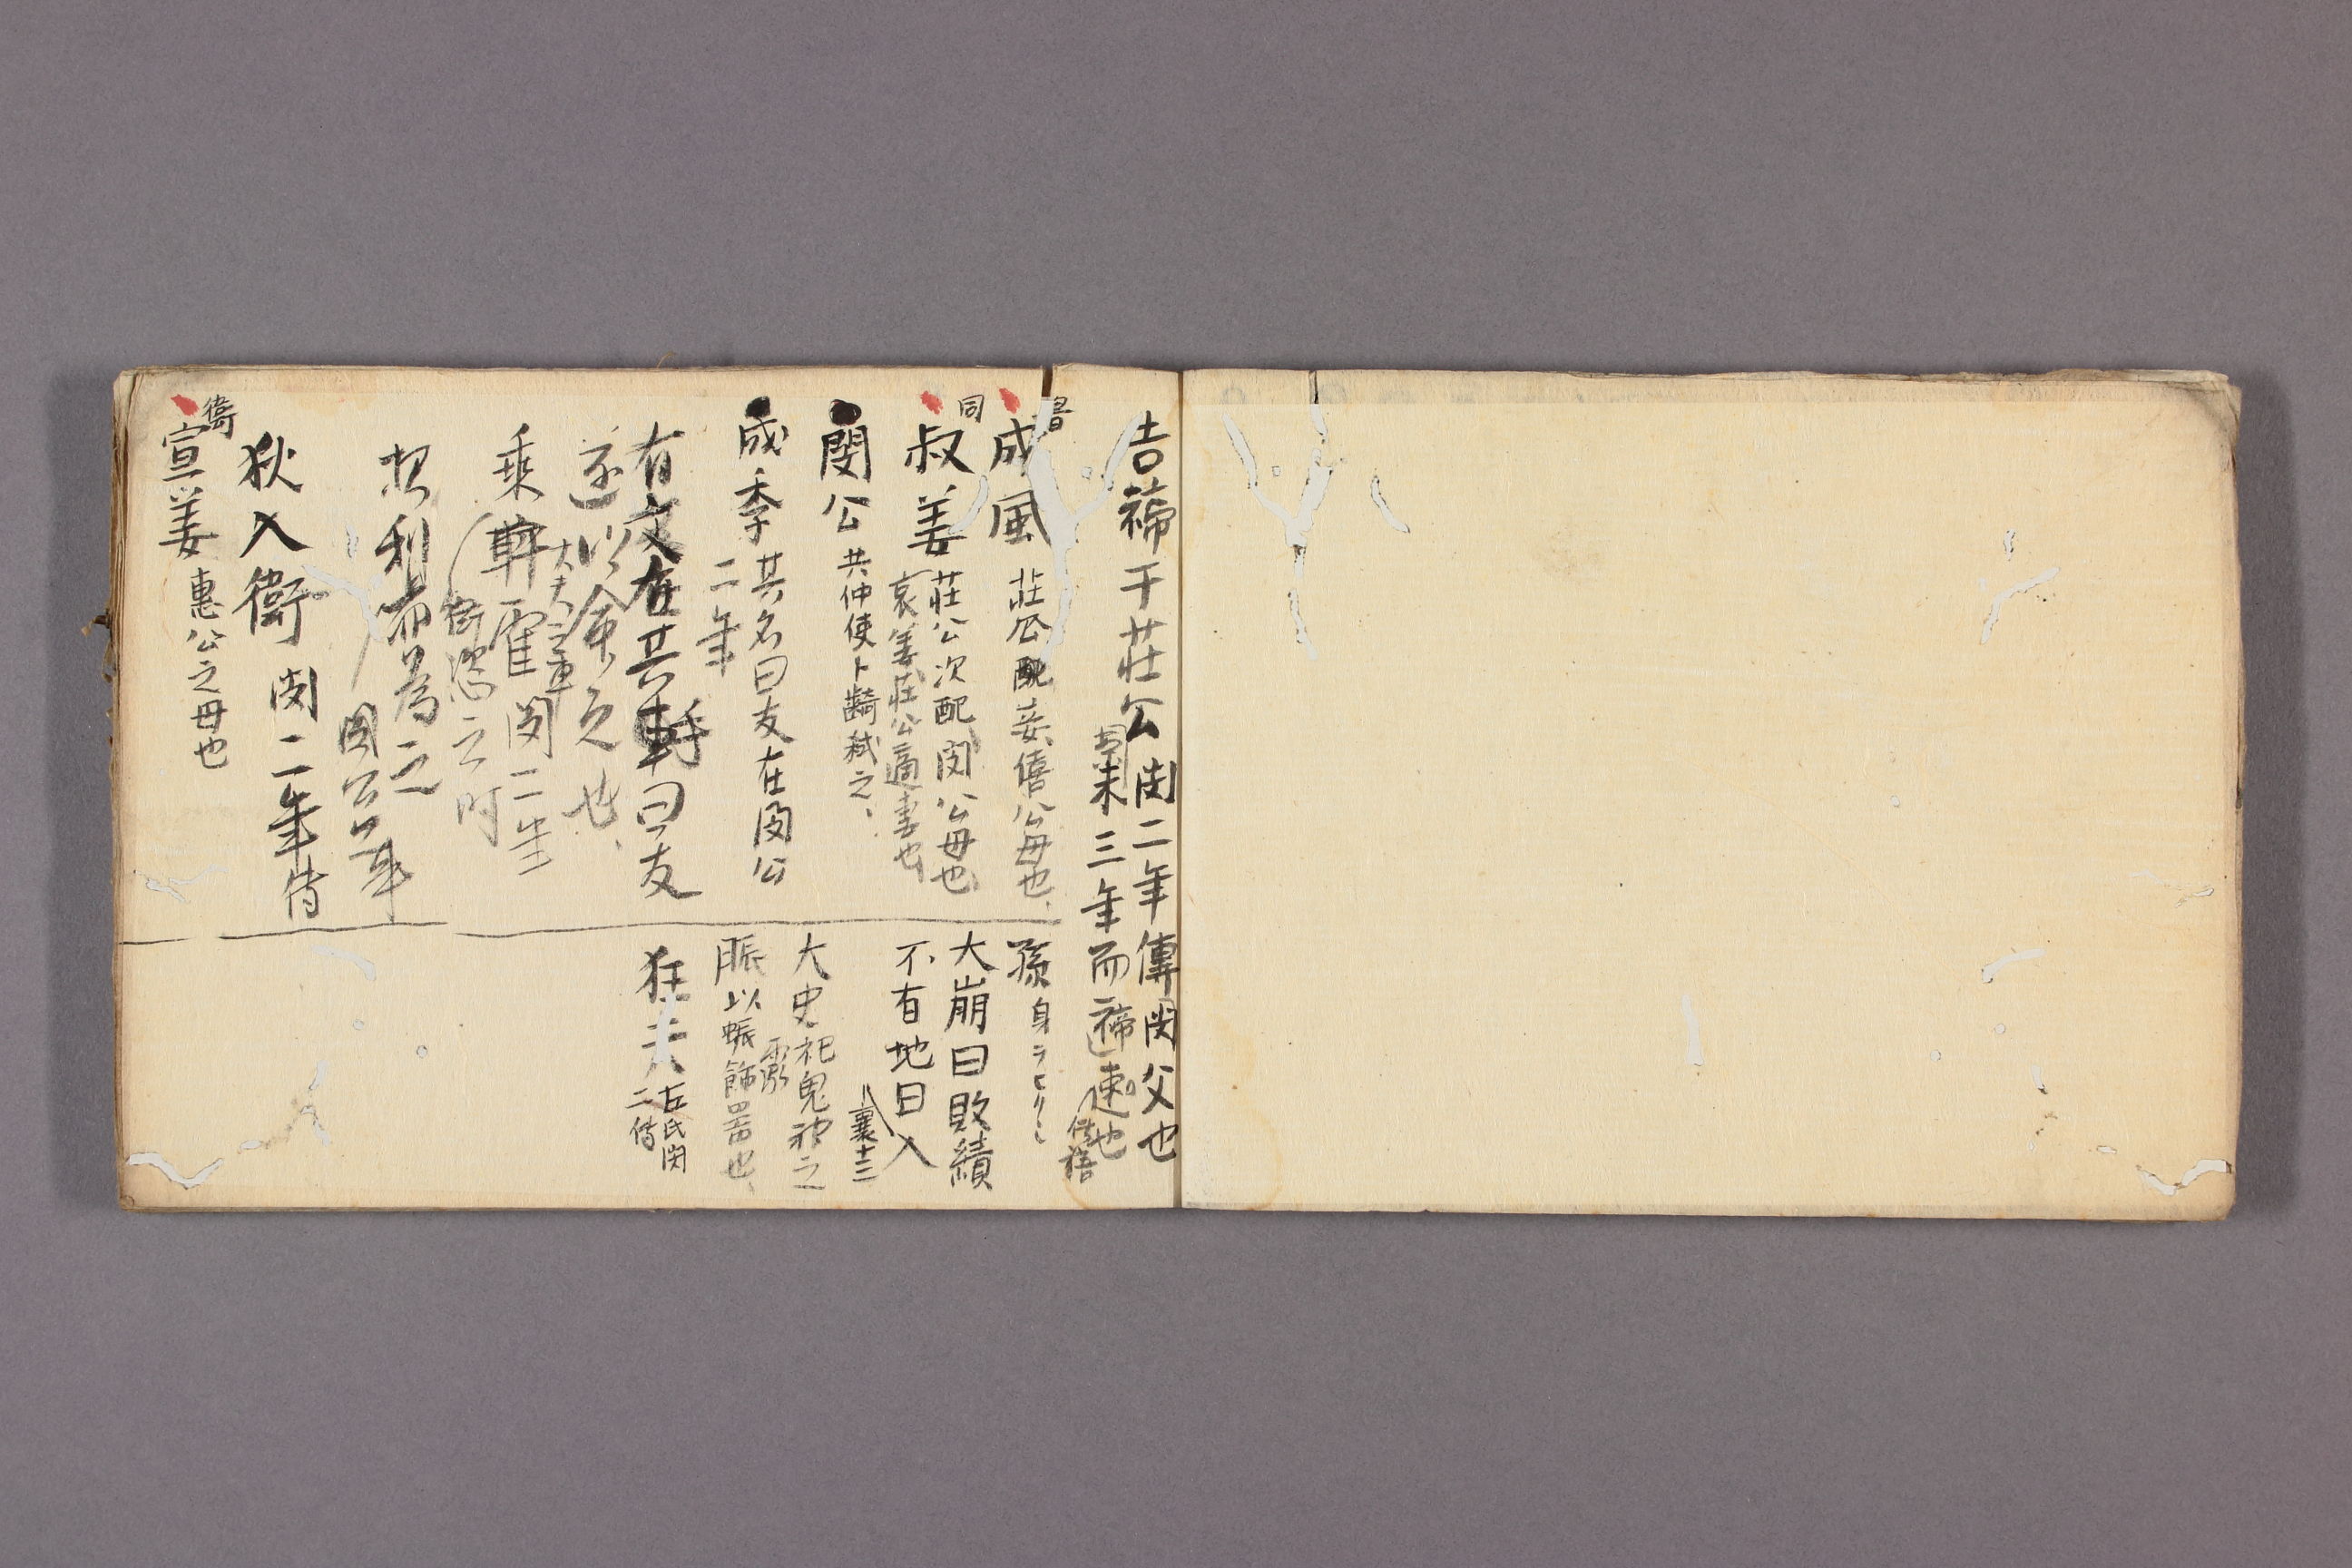 吉禘于莊公 閔二年傳閔父也
未三年而禘速也
成風 莊公配妾僖公母也
同
叔姜 莊公次配閔公母也
哀姜莊公適妻也
閔公 共仲使卜齮弑之
成季 其名曰友在閔公
二年
有文在其手曰友
遂以命之也
乘軒 閔二年
大夫之車
狄入衛 閔二年傳
衛
宣姜 惠公之母也
孫 身ヲヒク
大崩曰敗績
不有地曰入
襄十三
大史 祀鬼神之
脤以蜃飾器也
狂夫 左氏閔
二傳